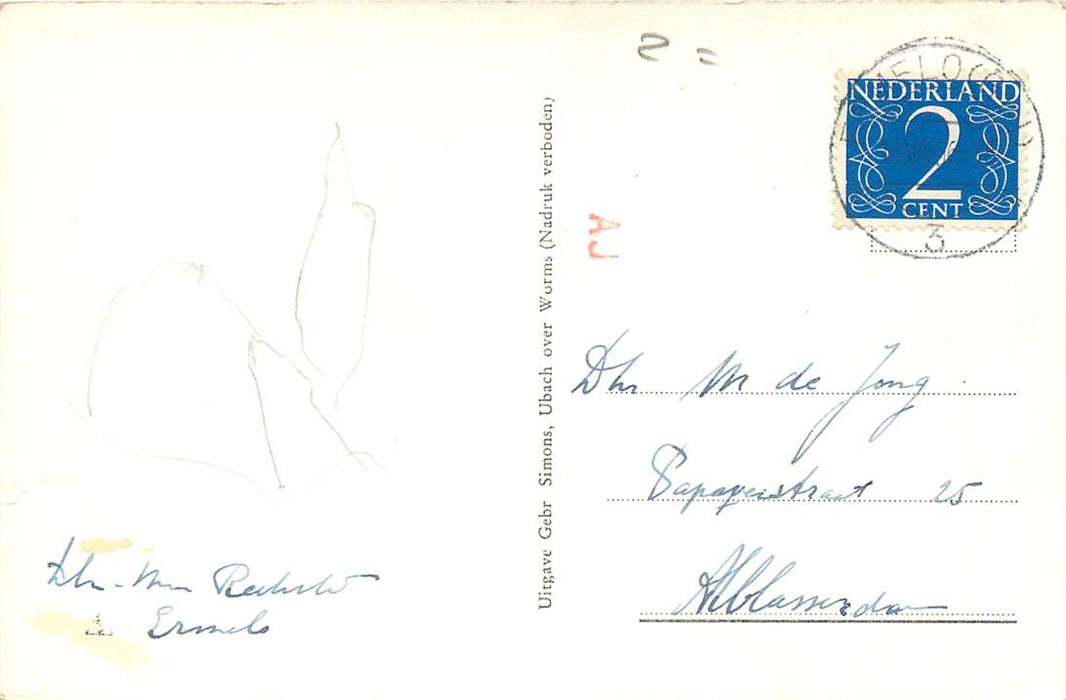 NEDERLAND
2
CENT
3
AJ
Uitgave Gebr Simons, Ubach over Worms (Nadruk verboden)
Dhr M de Jong
Papaverstraat 25
Alblasserdam
Dhr - Mevr
Ermelo